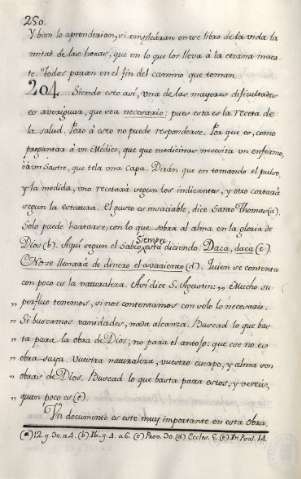 250.
Y bien lo aprendieran, si empleáran en ese libro de la vida la
mitad de las horas, que en lo que los lleva à la eterna muer-
te. Todos paran en el fin del camino que toman.
204. Siendo esto asi, una de las mayores dificultades
es averiguar, que sea necesario: pues esta es la receta de
la salud. Pero à esto no puede responderse. Por que es, como
preguntar à un Médico, que medicina necesita un enfermo,
ò à un Sastre, que tela una capa. Dirán que en tomando el pulso,
y la medida, uno recetará segun los indicantes, y otro cortará
segun la estatura. El gusto es insaciable, dice Santo Thomas (a).
Solo puede hartarse, con lo que sobra al alma en la gloria de
Dios (b). Aqui segun el Sabio está siempre diciendo: Daca, daca (c).
No se llenará de dinero el avariento (d). Quien se contenta
con poco es la naturaleza. Asi dice S. Agustin: "Mucho su-
" perfluo tenemos, si nos contentamos con solo lo necesario.
" Si buscamos vanidades, nada alcanza. Buscad lo que bas-
" ta para la obra de Dios, no para el antojo: que ese no es
" obra suya. Vuestra naturaleza, vuestro cuerpo, y alma son
" obras de Dios. Buscad lo que basta para estos, y vereis,
" quan poco es (e).
Un documento es este muy importante en esta obra.
(a) 12. q. 30. a 4. (b) Ib. q. 2. a 6. (c) Prov. 30. (d) Eccles. 5. (e) In Psal. 14